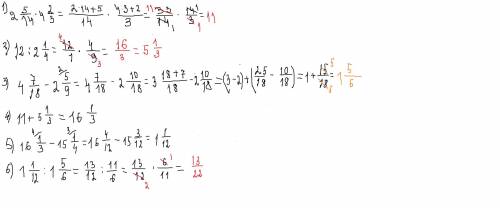 1) 2 5/14 · 4 2/3 = (2·14+5)/14 · (4·3+2)/3 = 11 33/14 1 · 14 1/3 1 = 11
2) 12 : 2 1/4 = 4 12/1 · 4/9 3 = 16/3 = 5 1/3
3) 4 7/18 - 2 2\ 5/9 = 4 7/18 - 2 10/18 = 3 (18+7)/18 - 2 10/18 = (3-2) + (25/18 - 10/18) = 1 + 15 5/18 6 = 1 5/6
4) 11 + 5 1/3 = 16 1/3
5) 16 4\ 1/3 - 15 3\ 1/4 = 16 4/12 - 15 3/12 = 1 1/12
6) 1 1/12 : 1 5/6 = 13/12 : 11/6 = 13/12 2 · 6 1/11 = 13/22